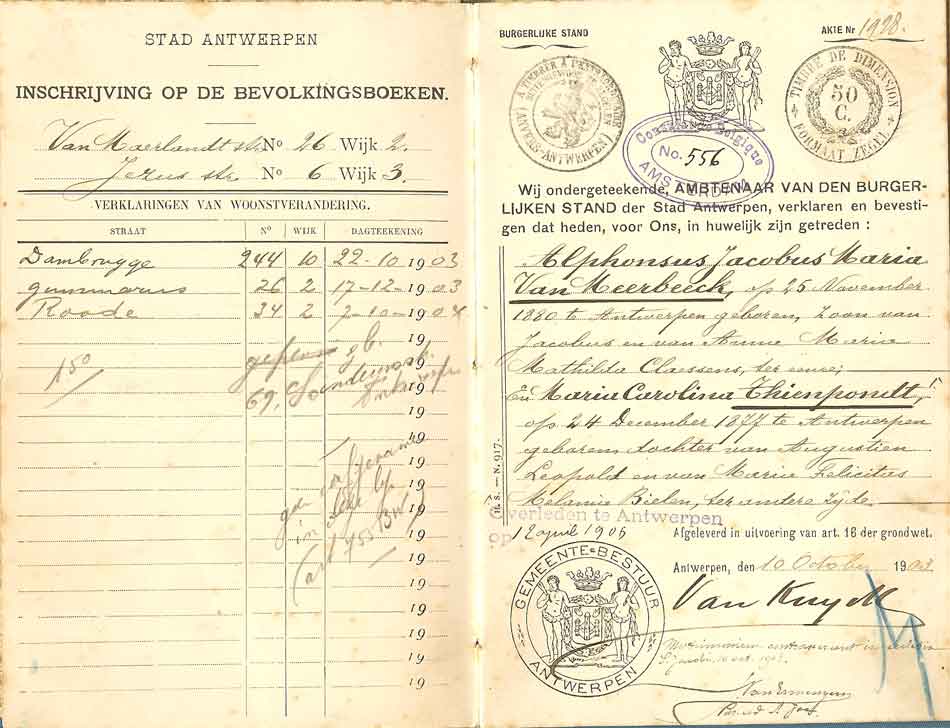 STAD ANTWERPEN
INSCHRIJVING OP DE BEVOLKINGSBOEKEN.
Van Maerlandtstr. No 26 Wijk 2.
Jezus str. No 6 Wijk 3.
VERKLARINGEN VAN WOONSTVERANDERING.
STRAAT No WIJK DAGTEEKENING
Dambrugge 244 10 22-10-1903
gummarus 26 2 17-12-1903
Roode 34 2 7-10-1904
19
15°
19
69,
19
19
19
19
19
in
19
19
19
19
19
19
19
19
19
BURGERLIJKE STAND
AKTE Nr 1928.
TIMBRE DE DIMENSION
50 C.
FORMAAT ZEGEL
Consulat de Belgique
No. 556
AMSTERDAM
Wij ondergeteekende, AMBTENAAR VAN DEN BURGER-
LIJKEN STAND der Stad Antwerpen, verklaren en bevesti-
gen dat heden, voor Ons, in huwelijk zijn getreden :
Alphonsus Jacobus Maria
Van Meerbeeck, op 25 November
1880 te Antwerpen geboren, zoon van
Jacobus en van Anna Maria
Mathilda Claessens, ter eene;
En Maria Carolina Thienpondt,
op 24 December 1877 te Antwerpen
geboren dochter van Augustien
Leopold en van Maria Felicitas
Melania Bielen, ter andere zijde
H. S. — N. 917.
Overleden te Antwerpen
op 12 april 1906
Afgeleverd in uitvoering van art. 16 der grondwet.
Antwerpen, den 10 October 1903
GEMEENTE-BESTUUR
ANTWERPEN
Van Kuyck
Matrimonium contraxerunt in ecclesia
S. Jacobi, 10 oct. 1903.